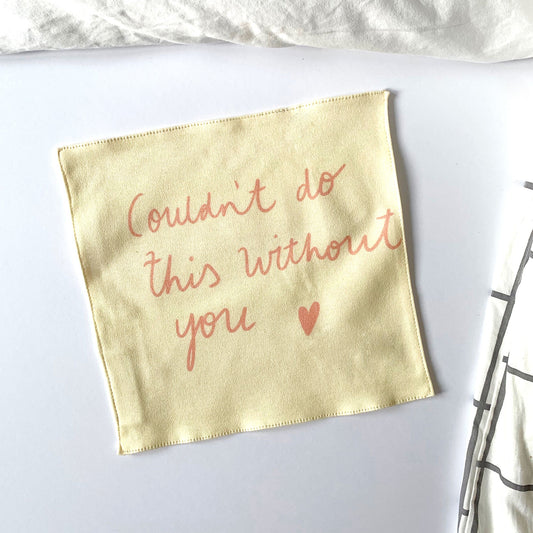 Couldn't do
this without
you ♥